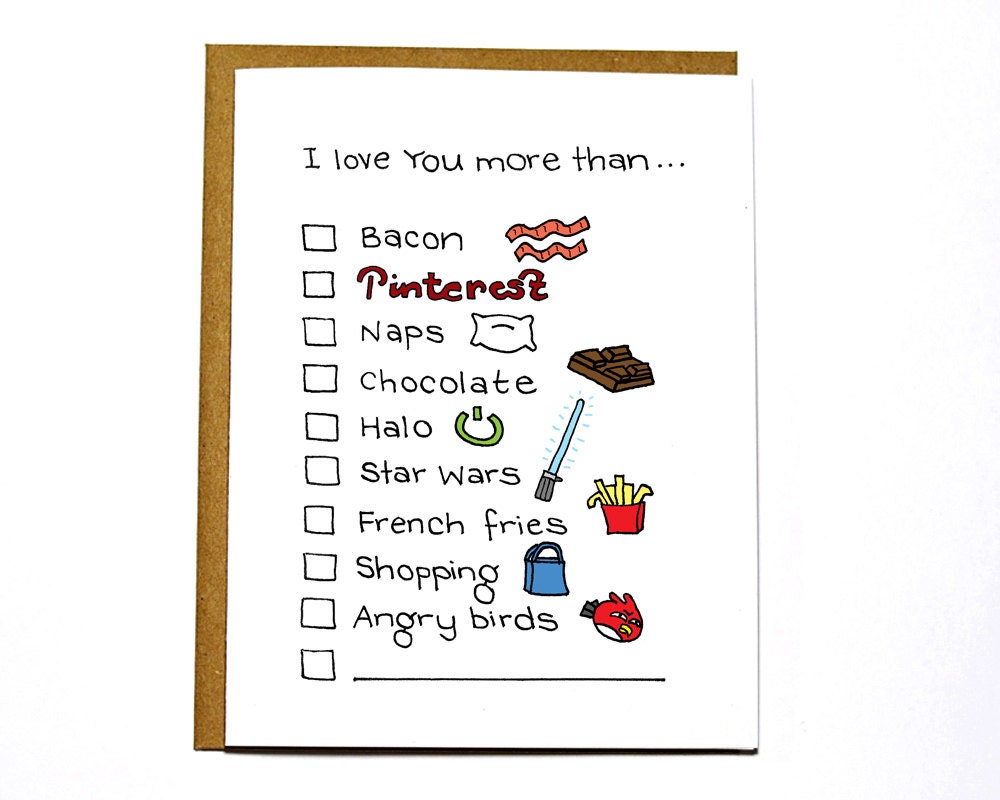 I love You more than...
Bacon
Pinterest
Naps
Chocolate
Halo
Star Wars
French fries
Shopping
Angry birds